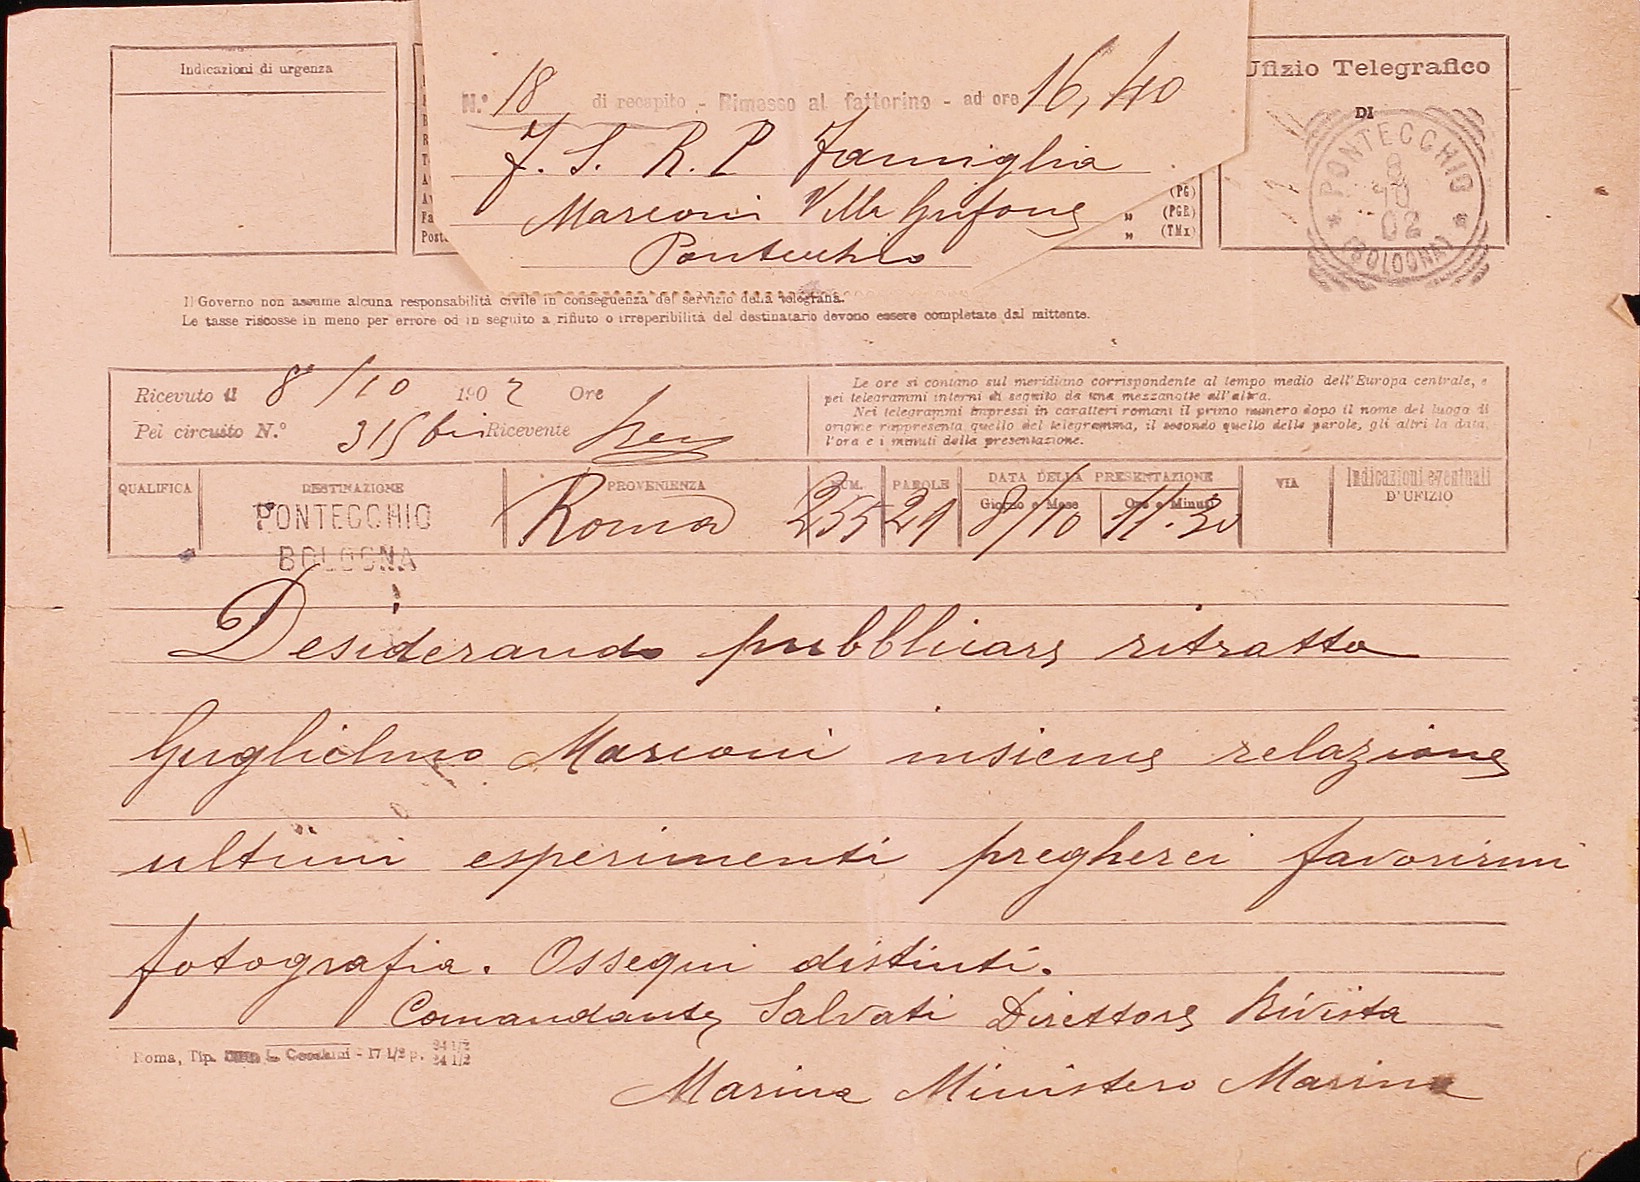 Indicazioni di urgenza
N.° 18 di recapito - Rimesso al fattorino - ad ore 16,40
F. S. R. P Famiglia
Marconi Villa Grifone
Pontecchio
(PG)
„ (PGR)
„ (TMx)
Ufizio Telegrafico
DI
PONTECCHIO
8
10
02
(BOLOGNA)
Il Governo non assume alcuna responsabilità civile in conseguenza del servizio della telegrafia.
Le tasse riscosse in meno per errore od in seguito a rifiuto o irreperibilità del destinatario devono essere completate dal mittente.
Ricevuto il 8 /10 1902 Ore
Pel circuito N.° 315 bis Ricevente
Le ore si contano sul meridiano corrispondente al tempo medio dell'Europa centrale, e
pei telegrammi interni di seguito da una mezzanotte all'altra.
Nei telegrammi impressi in caratteri romani il primo numero dopo il nome del luogo di
origine rappresenta quello del telegramma, il secondo quello delle parole, gli altri la data,
l'ora e i minuti della presentazione.
QUALIFICA DESTINAZIONE PROVENIENZA NUM. PAROLE DATA DELLA PRESENTAZIONE VIA Indicazioni eventuali
Giorno e Mese Ore e Minuti D'UFIZIO
PONTECCHIO Roma 255 21 8/10 11.30
BOLOGNA
Desiderando pubblicare ritratto
Guglielmo Marconi insieme relazione
ultimi esperimenti pregherei favorirmi
fotografia. Ossequi distinti.
Comandante Salvati Direttore Rivista
Marina Ministero Marina
Roma, Tip. - 17 1/2 p. 24 1/2
24 1/2